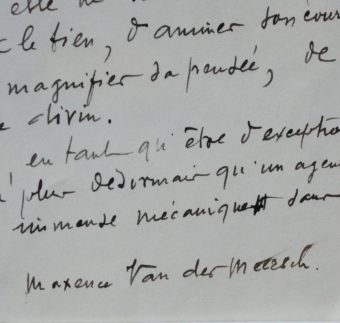 elle ne
le bien, d'animer son cœur
magnifier sa pensée, de
divin.
en tant qu'être d'exception
plus désormais qu'un agen
immense mécanique sans
Maxence Van der Meersch.